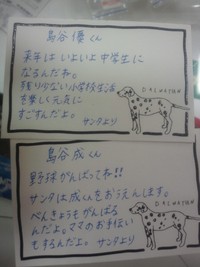 鳥谷 優くん
来年はいよいよ中学生に
なるんだね。
残り少ない小学校生活
を楽しく元気に
すごすんだよ。
サンタより
DALMATIAN
鳥谷 成くん
野球がんばってね!!
サンタは成くんをおうえんします。
べんきょうもがんばる
んだよ。ママのお手伝い
もするんだよ。サンタより
DALMATIAN